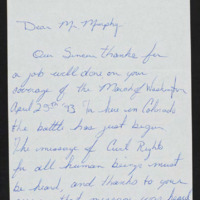 Dear Mr. Murphy
Our Sincere thanks for
a job well done on your
coverage of the March of Washington
April 25th '93 In here in Colorado
the battle has just begun
The message of Civil Rights
for all human beings must
be heard, and thanks to your
that message was heard